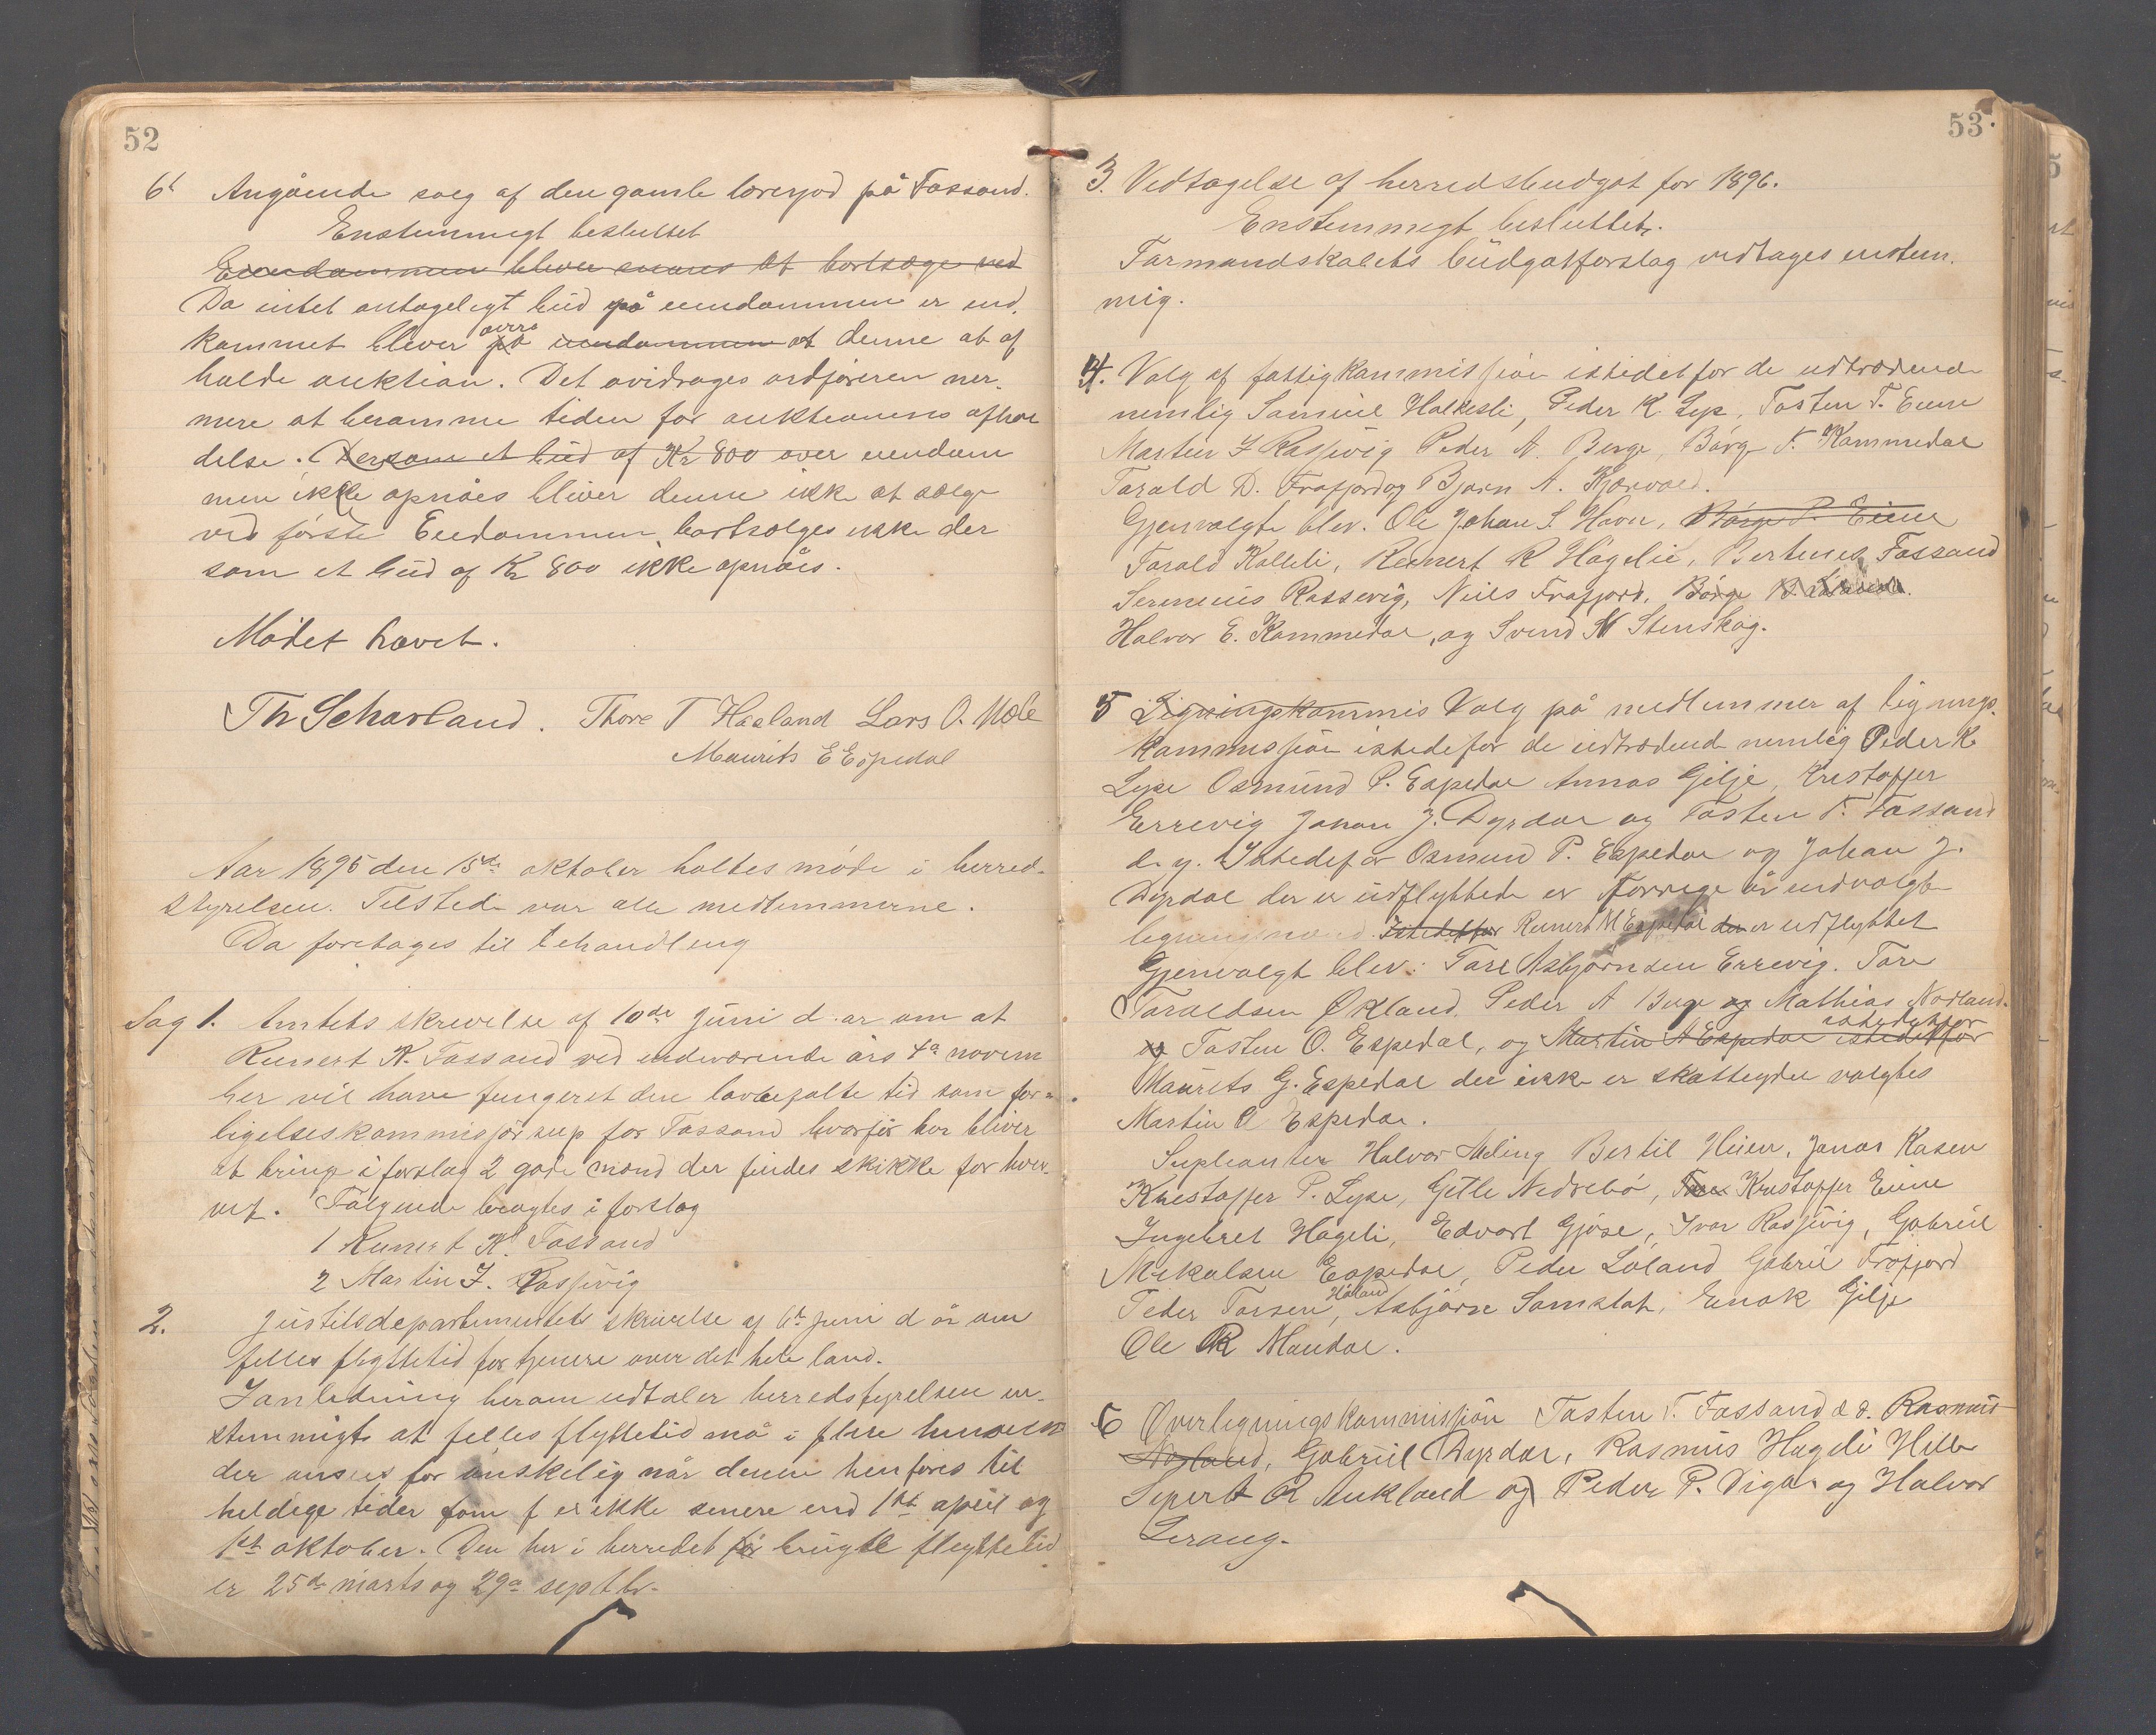 52
6t Angående salg af den gamle lærerjord på Fossand.
Enstemmigt besluttet
Eiendommen bliver snares at bortsælge ved
Da intet antageligt bud på eiendommen er ind,
kommet bliver på over eiendommen at denne at af
holde auktion. Det ovidrages ordføreren nær,
mere at beramme tiden for auktionens afhol
delse. Dersom et bud af Kr 800 over eiendom
men ikke opnåes bliver denne ikke at sælge
ved første Eiedommen bortsælges ikke der
som et bud af Kr 800 ikke opnåes.
Mødet hævet.
Th Scharland. Thore T Haaland Lars O. Mæle
Maurits E Espedal
Aar 1895 den 15de oktober holtes møde i herred-
styrelsen. Tilstede var alle medlemmerne.
Da foretages til behandling
Sag 1. Amtets skrivelse af 10de juni d. ar om at
Reinert K. Fossand ved indeværende års 4de novem
ber vil have fungeret den lovbefalte tid som for-
ligelseskommisjør her for Fossand hvorfor her bliver
at bringe i forslag 2 gode mænd der findes skikke for hver-
vet. Følgende bragtes i forslag
1 Reinert K. Fossand
2 Martin J. Rossevig
2. Justitsdepartementets skrivelse af 6te juni d år om
felles flyttetid for tjenere over det hele land.
I anledning herom udtaler herredstyrelsen en-
stemmigt at felles flyttetid må i flere henseen
der ansees for ønskelig når denne henføres til
heldige tider som f er ikke senere end 1ste april og
1ste oktober. Den her i herredet før brugte flyttetid
er 25de marts og 29de septbr.
53.
3. Vedtagelse af herredsbudgat for 1896.
Enstemmigt besluttet.
Formandskabets budgatforslag vedtages enstem.
mig.
4. Valg af fattigkommissjon istedet for de udtrædende
nemlig Samuel Halkesli, Peder K. Lyse, Tosten T. Eiene
Martin J Rossevig Peder A. Berge, Børge T. Kommedal
Tarald D. Frafjord og Bjørn A. Kjærvold.
Gjenvalgte blev. Ole Johan S. Havn, Børge P. Eiene
Tarald Kolleli, Reinert R Hågelie, Bertines Fossand
Serenius Rossevig, Niels Frafjord, Børge
Halvor E. Kommedal, og Svend N Stenskog.
5 Ligningskommis Valg på medlemmer af lignings-
kommissjon istedefor de udtrædende nemlig Peder K.
Lyse Osmund P. Espedal Annas Gilje, Kristoffer
Errevig Johan J. Dyrdal og Tosten T. Fossand
d. y. Istedefor Osmund P. Espedal og Johan J.
Dyrdal der er udflyttede er forrige år indvalgte
Istedetfor Reinert M Espedal der er udflyttet
Gjenvalgt blev: Tore Asbjørnsen Errevig. Tore
Taraldsen Økland. Peder A Berge og Mathias Norland.
og Tosten O. Espedal, og Martin A Espedal istedetfor istedetfor
Maurits G. Espedal der ikke er skatteyder valgtes
Martin A Espedal.
Supleanter Halvor Meling Bertil Heien, Jonas Kasen
Kristoffer P. Lyse, Getle Nedrebø, Tore Kristoffer Eiene
Ingebret Hågeli, Edvart Gjøse, Ivar Rossevig, Gabriel
Mikalsen Espedal, Peder Løland Gabriel Frafjord
Peder Tarsen Håland, Asbjørn Samstat, Enok Gilje
Ole R Maudal.
6 Overligningskommissjon Tosten T. Fossand d. æ. Rasmus
Norland, Gabriel Dyrdal, Rasmus Hageli Helle
Sivert R Aukland og Peder P. Viga og Halvor
Lerang.